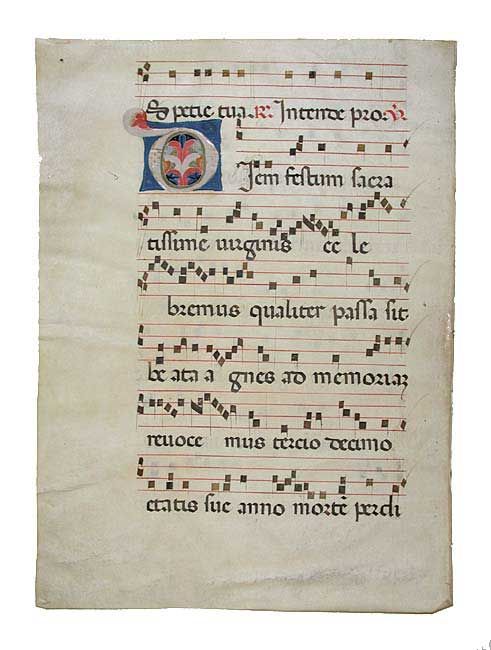 Specie tua. R. Intende pro. V.
Diem festum sacra
tissime virginis ce le
bremus qualiter passa sit
be ata a gnes ad memoriaz
revoce mus tercio decimo
etatis sue anno mortē perdi